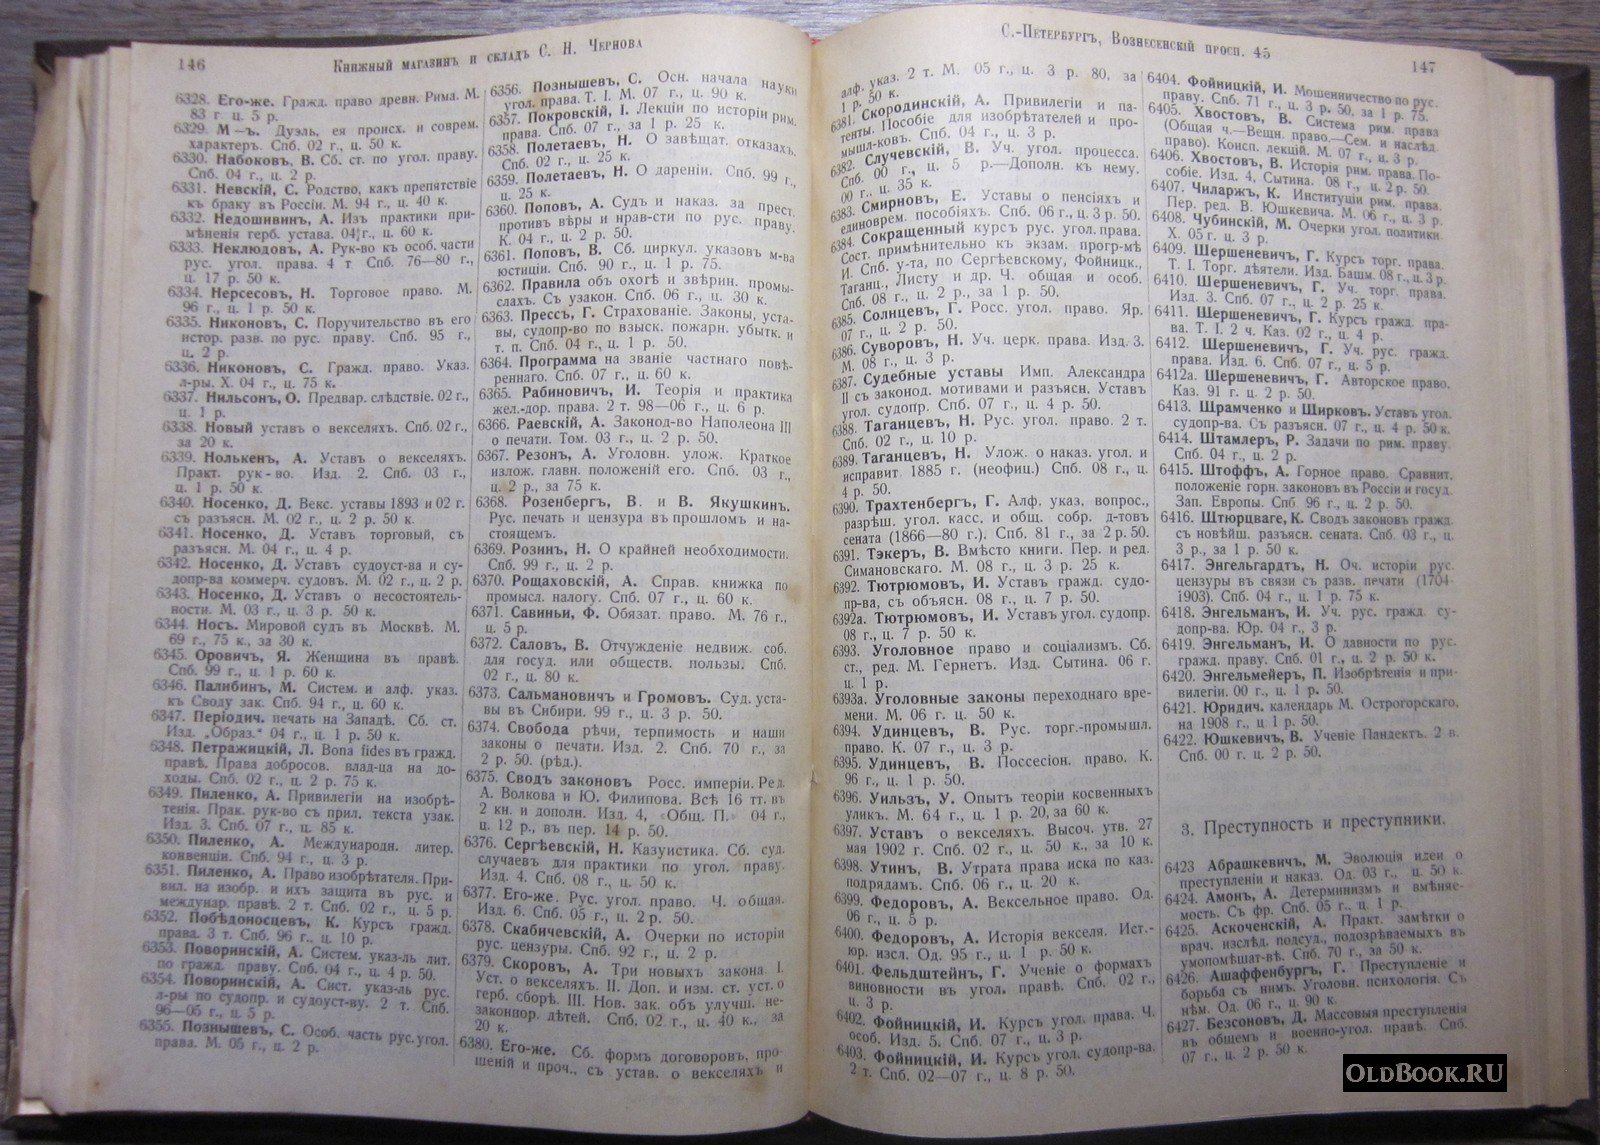 146
Книжный магазинъ и складъ С. Н. Чернова
6328. Его-же. Гражд. право древн. Рима. М.
83 г. ц. 5 р.
6329. М—ъ. Дуэль, ея происх. и соврем.
характеръ. Спб. 02 г., ц. 50 к.
6330. Набоковъ, В. Сб. ст. по угол. праву.
Спб. 04 г., ц. 2 р.
6331. Невскій, С. Родство, какъ препятствіе
къ браку в Россіи. М. 94 г., ц. 40 к.
6332. Недошивинъ, А. Изъ практики при-
мѣненія герб. устава. 04 г., ц. 60 к.
6333. Неклюдовъ, А. Рук-во къ особ. части
рус. угол. права. 4 т. Спб. 76—80 г.,
ц. 17 р. 50 к.
6334. Нерсесовъ, Н. Торговое право. М.
96 г., ц. 1 р. 50 к.
6335. Никоновъ, С. Поручительство въ его
истор. разв. по рус. праву. Спб. 95 г.,
ц. 2 р.
6336. Никоновъ, С. Гражд. право. Указ.
л-ры. Х. 04 г., ц. 75 к.
6337. Нильсонъ, О. Предвар. слѣдствіе. 02 г.,
ц. 1 р.
6338. Новый уставъ о векселяхъ. Спб. 02 г.,
за 20 к.
6339. Нолькенъ, А. Уставъ о векселяхъ.
Практ. рук-во. Изд. 2. Спб. 03 г.,
ц. 1 р. 50 к.
6340. Носенко, Д. Векс. уставы 1893 и 02 г.
съ разъясн. М. 02 г., ц. 2 р. 50 к.
6341. Носенко, Д. Уставъ торговый, съ
разъясн. М. 04 г., ц. 4 р.
6342. Носенко, Д. Уставъ судоуст-ва и су-
допр-ва коммерч. судовъ. М. 02 г., ц. 2 р.
6343. Носенко, Д. Уставъ о несостоятель-
ности. М. 03 г., ц. 3 р. 50 к.
6344. Носъ. Мировой судъ въ Москвѣ. М.
69 г., 75 к., за 30 к.
6345. Оровичъ, Я. Женщина въ правѣ.
Спб. 99 г., ц. 1 р. 60 к.
6346. Палибинъ, М. Систем. и алф. указ.
къ Своду зак. Спб. 94 г., ц. 60 к.
6347. Періодич. печать на Западѣ. Сб. ст.
Изд. „Образ." 04 г., ц. 1 р. 50 к.
6348. Петражицкій, Л. Bona fides въ гражд.
правѣ. Права добросов. влад-ца на до-
ходы. Спб. 02 г., ц. 2 р. 75 к.
6349. Пиленко, А. Привилегіи на изобрѣ-
тенія. Прак. рук-во съ прил. текста узак.
Изд. 3. Спб. 07 г., ц. 85 к.
6350. Пиленко, А. Международн. литер.
конвенціи. Спб. 94 г., ц. 3 р.
6351. Пиленко, А. Право изобрѣтателя. При-
вил. на изобр. и ихъ защита въ рус. и
междунар. правѣ. 2 т. Спб. 02 г., ц. 5 р.
6352. Побѣдоносцевъ, К. Курсъ гражд.
права. 3 т. Спб. 96 г., ц. 10 р.
6353. Поворинскій, А. Систем. указ-ль лит.
по гражд. праву. Спб. 04 г., ц. 4 р. 50.
6354. Поворинскій, А. Сист. указ-ль рус.
л-ры по судопр. и судоуст-ву. 2 т. Спб.
96—05 г., ц. 5 р.
6355. Познышевъ, С. Особ. часть рус. угол.
права. М. 05 г., ц. 2 р.
6356. Познышевъ, С. Осн. начала науки
угол. права. Т. I. М. 07 г., ц. 90 к.
6357. Покровскій, І. Лекціи по исторіи рим.
права. Спб. 07 г., за 1 р. 25 к.
6358. Полетаевъ, Н. О завѣщат. отказахъ.
Спб. 02 г., ц. 25 к.
6359. Полетаевъ, Н. О дареніи. Спб. 99 г.,
ц. 25 к.
6360. Поповъ, А. Судъ и наказ. за прест.
противъ вѣры и нрав-сти по рус. праву.
К. 04 г., ц. 2 р. 50.
6361. Поповъ, В. Сб. циркул. указовъ м-ва
юстиціи. Спб. 90 г., ц. 1 р. 75.
6362. Правила объ охотѣ и звѣрин. промы-
слахъ. Съ узакон. Спб. 06 г., ц. 30 к.
6363. Прессъ, Г. Страхованіе. Законы, уста-
вы, судопр-во по взыск. пожарн. убытк. и
т. п. Спб. 04 г., ц. 1 р. 50.
6364. Программа на званіе частнаго повѣ-
реннаго. Спб. 07 г., ц. 60 к.
6365. Рабиновичъ, И. Теорія и практика
жел.-дор. права. 2 т. 98—06 г., ц. 6 р.
6366. Раевскій, А. Законод-во Наполеона III
о печати. Том. 03 г., ц. 2 р. 50.
6367. Резонъ, А. Уголовн. улож. Краткое
излож. главн. положеній его. Спб. 03 г.,
ц. 2 р., за 75 к.
6368. Розенбергъ, В. и В. Якушкинъ.
Рус. печать и цензура въ прошломъ и на-
стоящемъ.
6369. Розинъ, Н. О крайней необходимости.
Спб. 99 г., ц. 2 р.
6370. Рощаховскій, А. Справ. книжка по
промысл. налогу. Спб. 07 г., ц. 60 к.
6371. Савиньи, Ф. Обязат. право. М. 76 г.,
ц. 5 р.
6372. Саловъ, В. Отчужденіе недвиж. соб.
для госуд. или обществ. пользы. Спб.
02 г., ц. 80 к.
6373. Сальмановичъ и Громовъ. Суд. уста-
вы въ Сибири. 99 г., ц. 3 р. 50.
6374. Свобода рѣчи, терпимость и наши
законы о печати. Изд. 2. Спб. 70 г., за
2 р. 50. (рѣд.).
6375. Сводъ законовъ Росс. имперіи. Ред.
А. Волкова и Ю. Филипова. Всѣ 16 тт. въ
2 кн. и дополн. Изд. 4, «Общ. П.» 04 г.,
ц. 12 р., въ пер. 14 р. 50.
6376. Сергѣевскій, Н. Казуистика. Сб. суд.
случаевъ для практики по угол. праву.
Изд. 4. Спб. 08 г., ц. 50 к.
6377. Его-же. Рус. угол. право. Ч. общая.
Изд. 6. Спб. 05 г., ц. 2 р. 50.
6378. Скабичевскій, А. Очерки по исторіи
рус. цензуры. Спб. 92 г., ц. 2 р.
6379. Скоровъ, А. Три новыхъ закона. I.
Уст. о векселяхъ. II. Доп. и изм. ст. уст. о
герб. сборѣ. III. Нов. зак. объ улучш. не-
законнор. дѣтей. Спб. 02 г., ц. 40 к., за
20 к.
6380. Его-же. Сб. формъ договоровъ, про-
шеній и проч., съ устав. о векселяхъ и
С.-Петербургъ, Вознесенскій просп. 45
147
алф. указ. 2 т. М. 05 г., ц. 3 р. 80, за
1 р. 50 к.
6381. Скородинскій, А. Привилегіи и па-
тенты. Пособіе для изобрѣтателей и про-
мышл-ковъ. Спб. 04 г., ц. 3 р.
6382. Случевскій, В. Уч. угол. процесса.
Спб. 00 г., ц. 5 р.—Дополн. къ нему.
00 г., ц. 35 к.
6383. Смирновъ, Е. Уставы о пенсіяхъ и
единоврем. пособіяхъ. Спб. 06 г., ц. 3 р. 50.
6384. Сокращенный курсъ рус. угол. права.
Сост. примѣнительно къ экзам. прогр-мѣ
И. Спб. у-та, по Сергѣевскому, Фойницк.,
Таганц., Листу и др. Ч. общая и особ.
Спб. 08 г., ц. 2 р., за 1 р. 50.
6385. Солнцевъ, Г. Росс. угол. право. Яр.
07 г., ц. 2 р. 50.
6386. Суворовъ, Н. Уч. церк. права. Изд. 3.
М. 08 г., ц. 3 р.
6387. Судебные уставы Имп. Александра
II съ законод. мотивами и разъясн. Уставъ
угол. судопр. Спб. 07 г., ц. 4 р. 50.
6388. Таганцевъ, Н. Рус. угол. право. 2 т.
Спб. 02 г., ц. 10 р.
6389. Таганцевъ, Н. Улож. о наказ. угол. и
исправит 1885 г. (неофиц.) Спб. 08 г., ц.
4 р. 50.
6390. Трахтенбергъ, Г. Алф. указ. вопрос.,
разрѣш. угол. касс. и общ. собр. д-товъ
сената (1866—80 г.). Спб. 81 г., за 2 р. 50.
6391. Тэкеръ, В. Вмѣсто книги. Пер. и ред.
Симановскаго. М. 08 г., ц. 3 р. 25 к.
6392. Тютрюмовъ, И. Уставъ гражд. судо-
пр-ва, съ объясн. 08 г., ц. 7 р. 50.
6392а. Тютрюмовъ, И. Уставъ угол. судопр.
08 г., ц. 7 р. 50 к.
6393. Уголовное право и соціализмъ. Сб.
ст., ред. М. Гернетъ. Изд. Сытина. 06 г.
ц. 1 р.
6393а. Уголовные законы переходнаго вре-
мени. М. 06 г. ц. 50 к.
6394. Удинцевъ, В. Рус. торг.-промышл.
право. К. 07 г., ц. 3 р.
6395. Удинцевъ, В. Поссесіон. право. К.
96 г., ц. 1 р. 50.
6396. Уильзъ, У. Опытъ теоріи косвенныхъ
уликъ. М. 64 г., ц. 1 р. 20, за 60 к.
6397. Уставъ о векселяхъ. Высоч. утв. 27
мая 1902 г. Спб. 02 г., ц. 50 к., за 10 к.
6398. Утинъ, В. Утрата права иска по каз.
подрядамъ. Спб. 06 г., ц. 20 к.
6399. Федоровъ, А. Вексельное право. Од.
06 г., ц. 5 р.
6400. Федоровъ, А. Исторія векселя. Ист.-
юр. изсл. Од. 95 г., ц. 1 р. 50 к.
6401. Фельдштейнъ, Г. Ученіе о формахъ
виновности въ угол. правѣ. Спб. 02 г.,
ц. 3 р.
6402. Фойницкій, И. Курсъ угол. права. Ч.
особ. Изд. 5. Спб. 07 г., ц. 3 р.
6403. Фойницкій, И. Курсъ угол. судопр-ва.
2 т. Спб. 02—07 г., ц. 8 р. 50.
6404. Фойницкій, И. Мошенничество по рус.
праву. Спб. 71 г., ц. 3 р. 50, за 1 р. 75.
6405. Хвостовъ, В. Система рим. права
(Общая ч.—Вещн. право.—Сем. и наслѣд.
право). Консп. лекцій. М. 07 г., ц. 3 р.
6406. Хвостовъ, В. Исторія рим. права. По-
собіе. Изд. 4, Сытина. 08 г., ц. 2 р. 50.
6407. Чиларжъ, К. Институціи рим. права.
Пер. ред. В. Юшкевича. М. 06 г., ц. 3 р.
6408. Чубинскій, М. Очерки угол. политики.
Х. 05 г. ц. 3 р.
6409. Шершеневичъ, Г. Курсъ торг. права.
Т. I. Торг. дѣятели. Изд. Башм. 08 г., ц. 3 р.
6410. Шершеневичъ, Г. Уч. торг. права.
Изд. 3. Спб. 07 г., ц. 2 р. 25 к.
6411. Шершеневичъ, Г. Курсъ гражд. пра-
ва. Т. I. 2 ч. Каз. 02 г., ц. 4 р.
6412. Шершеневичъ, Г. Уч. рус. гражд.
права. Изд. 6. Спб. 07 г., ц. 5 р.
6412а. Шершеневичъ, Г. Авторское право.
Каз. 91 г. ц. 2 р. 50.
6413. Шрамченко и Ширковъ. Уставъ угол.
судопр-ва. Съ разъясн. 07 г., ц. 4 р. 50 к.
6414. Штамлеръ, Р. Задачи по рим. праву.
Спб. 04 г., ц. 2 р.
6415. Штоффъ, А. Горное право. Сравнит.
положеніе горн. законовъ въ Россіи и госуд.
Зап. Европы. Спб 96 г., ц. 2 р. 50.
6416. Штюрцваге, К. Сводъ законовъ гражд.
съ новѣйш. разъясн. сената. Спб. 03 г., ц.
3 р., за 1 р. 50 к.
6417. Энгельгардтъ, Н. Оч. исторіи рус.
цензуры въ связи съ разв. печати (1704-
1903). Спб. 04 г., ц. 1 р. 75 к.
6418. Энгельманъ, И. Уч. рус. гражд. су-
допр-ва. Юр. 04 г., 3 р.
6419. Энгельманъ, И. О давности по рус.
гражд. праву. Спб. 01 г., ц. 2 р. 50 к.
6420. Энгельмейеръ, П. Изобрѣтенія и при-
вилегіи. 00 г., ц. 1 р. 50.
6421. Юридич. календарь М. Острогорскаго,
на 1908 г., ц 1 р. 50.
6422. Юшкевичъ, В. Ученіе Пандектъ. 2 в.
Спб. 00 г. ц. 2 р. 50.
3. Преступность и преступники.
6423 Абрашкевичъ, М. Эволюція идеи о
преступленіи и наказ. Од. 03 г., ц. 50 к.
6424. Амонъ, А. Детерминизмъ и вмѣняе-
мость. Съ фр. Спб. 05 г., ц. 1 р.
6425. Аскоченскій, А. Практ. замѣтки о
врач. изслѣд. подсуд., подозрѣваемыхъ въ
умопомѣшат-вѣ. Спб. 70 г., за 50 к.
6426. Ашаффенбургъ, Г. Преступленіе и
борьба съ нимъ. Уголовн. психологія. Съ
нѣм. Од. 06 г., ц. 90 к.
6427. Безсоновъ, Д. Массовыя преступленія
въ общемъ и военно-угол. правѣ. Спб.
07 г., ц. 2 р. 50 к.
OldBook.RU